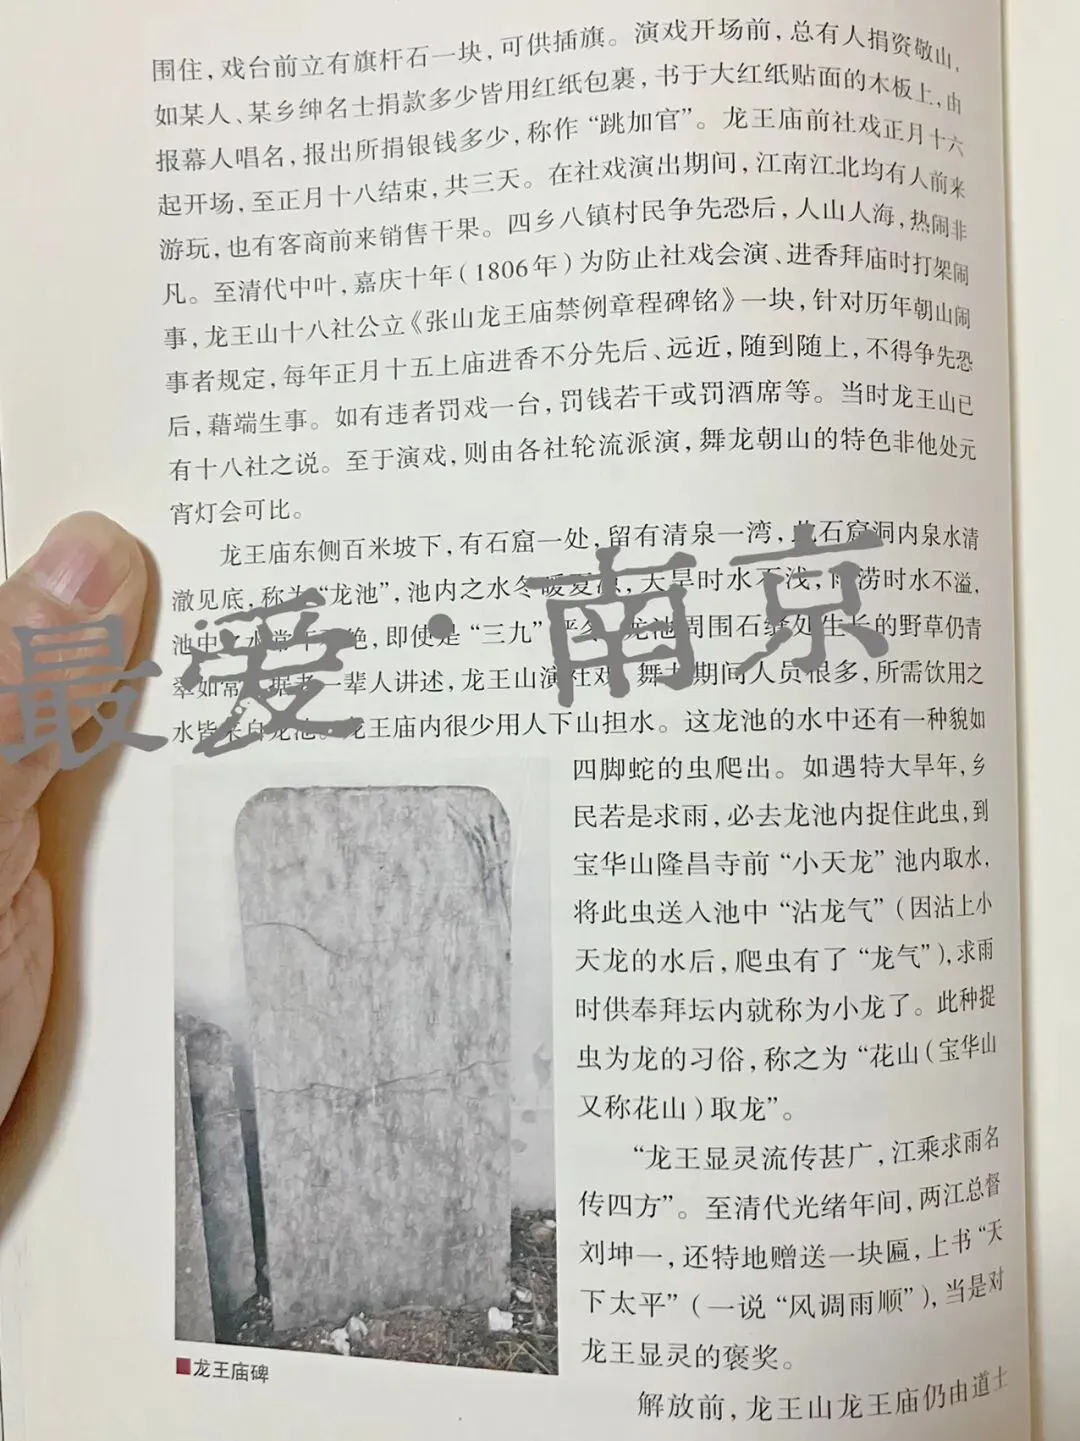 围住，戏台前立有旗杆石一块，可供插旗。演戏开场前，总有人捐资敬山，
如某人、某乡绅名士捐款多少皆用红纸包裹，书于大红纸贴面的木板上，由
报幕人唱名，报出所捐银钱多少，称作“跳加官”。龙王庙前社戏正月十六
起开场，至正月十八结束，共三天。在社戏演出期间，江南江北均有人前来
游玩，也有客商前来销售干果。四乡八镇村民争先恐后，人山人海，热闹非
凡。至清代中叶，嘉庆十年（1806年）为防止社戏会演、进香拜庙时打架闹
事，龙王山十八社公立《张山龙王庙禁例章程碑铭》一块，针对历年朝山闹
事者规定，每年正月十五上庙进香不分先后、远近，随到随上，不得争先恐
后，藉端生事。如有违者罚戏一台，罚钱若干或罚酒席等。当时龙王山已
有十八社之说。至于演戏，则由各社轮流派演，舞龙朝山的特色非他处元
宵灯会可比。
龙王庙东侧百米坡下，有石窟一处，留有清泉一湾，此石窟洞内泉水清
澈见底，称为“龙池”，池内之水冬暖夏凉，天旱时水不浅，雨涝时水不溢，
池中 水常年 绝，即使是“三九”严冬，龙池周围石缝处生长的野草仍青
翠如常。据老一辈人讲述，龙王山演社戏、舞龙期间人员很多，所需饮用之
水皆来自龙池。龙王庙内很少用人下山担水。这龙池的水中还有一种貌如
四脚蛇的虫爬出。如遇特大旱年，乡
民若是求雨，必去龙池内捉住此虫，到
宝华山隆昌寺前“小天龙”池内取水，
将此虫送入池中“沾龙气”（因沾上小
天龙的水后，爬虫有了“龙气”），求雨
时供奉拜坛内就称为小龙了。此种捉
虫为龙的习俗，称之为“花山（宝华山
又称花山）取龙”。
“龙王显灵流传甚广，江乘求雨名
传四方”。至清代光绪年间，两江总督
刘坤一，还特地赠送一块匾，上书“天
下太平”（一说“风调雨顺”），当是对
龙王显灵的褒奖。
解放前，龙王山龙王庙仍由道士
■龙王庙碑
最爱·南京